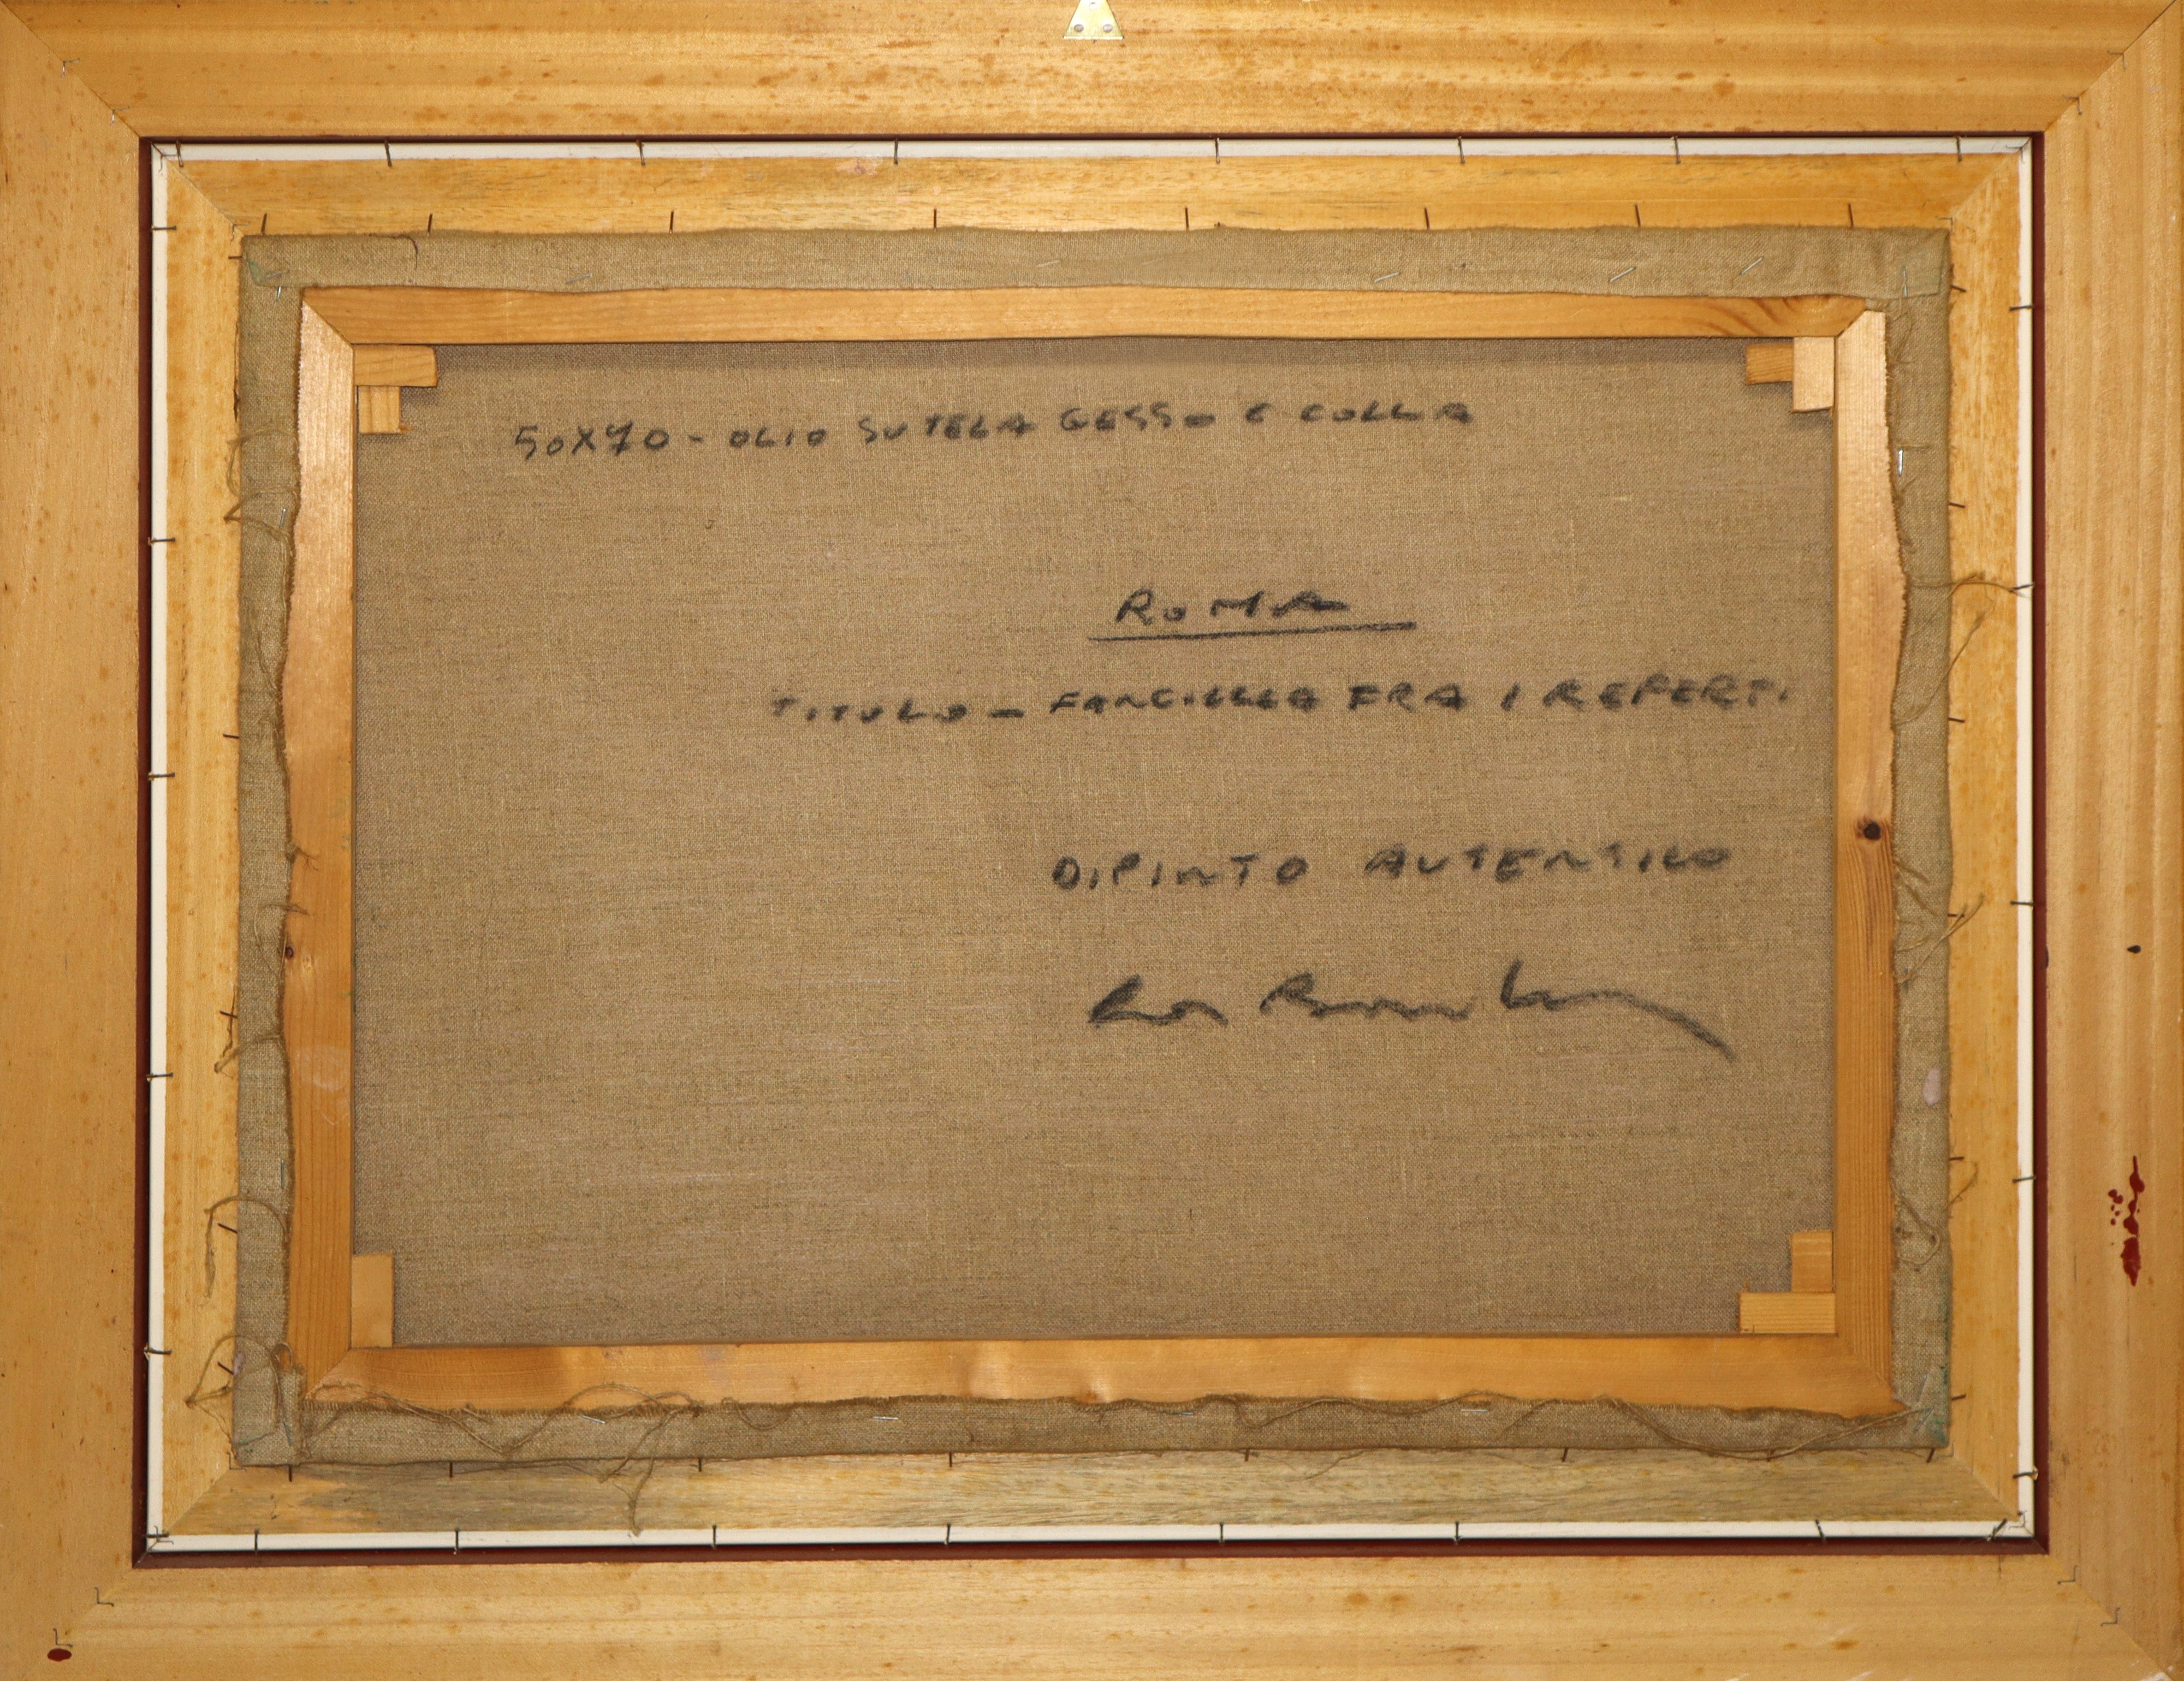 50X70 - OLIO SU TELA GESSO E COLLA
ROMA
TITOLO - FANCIULLA FRA I REPERTI
DIPINTO AUTENTICO